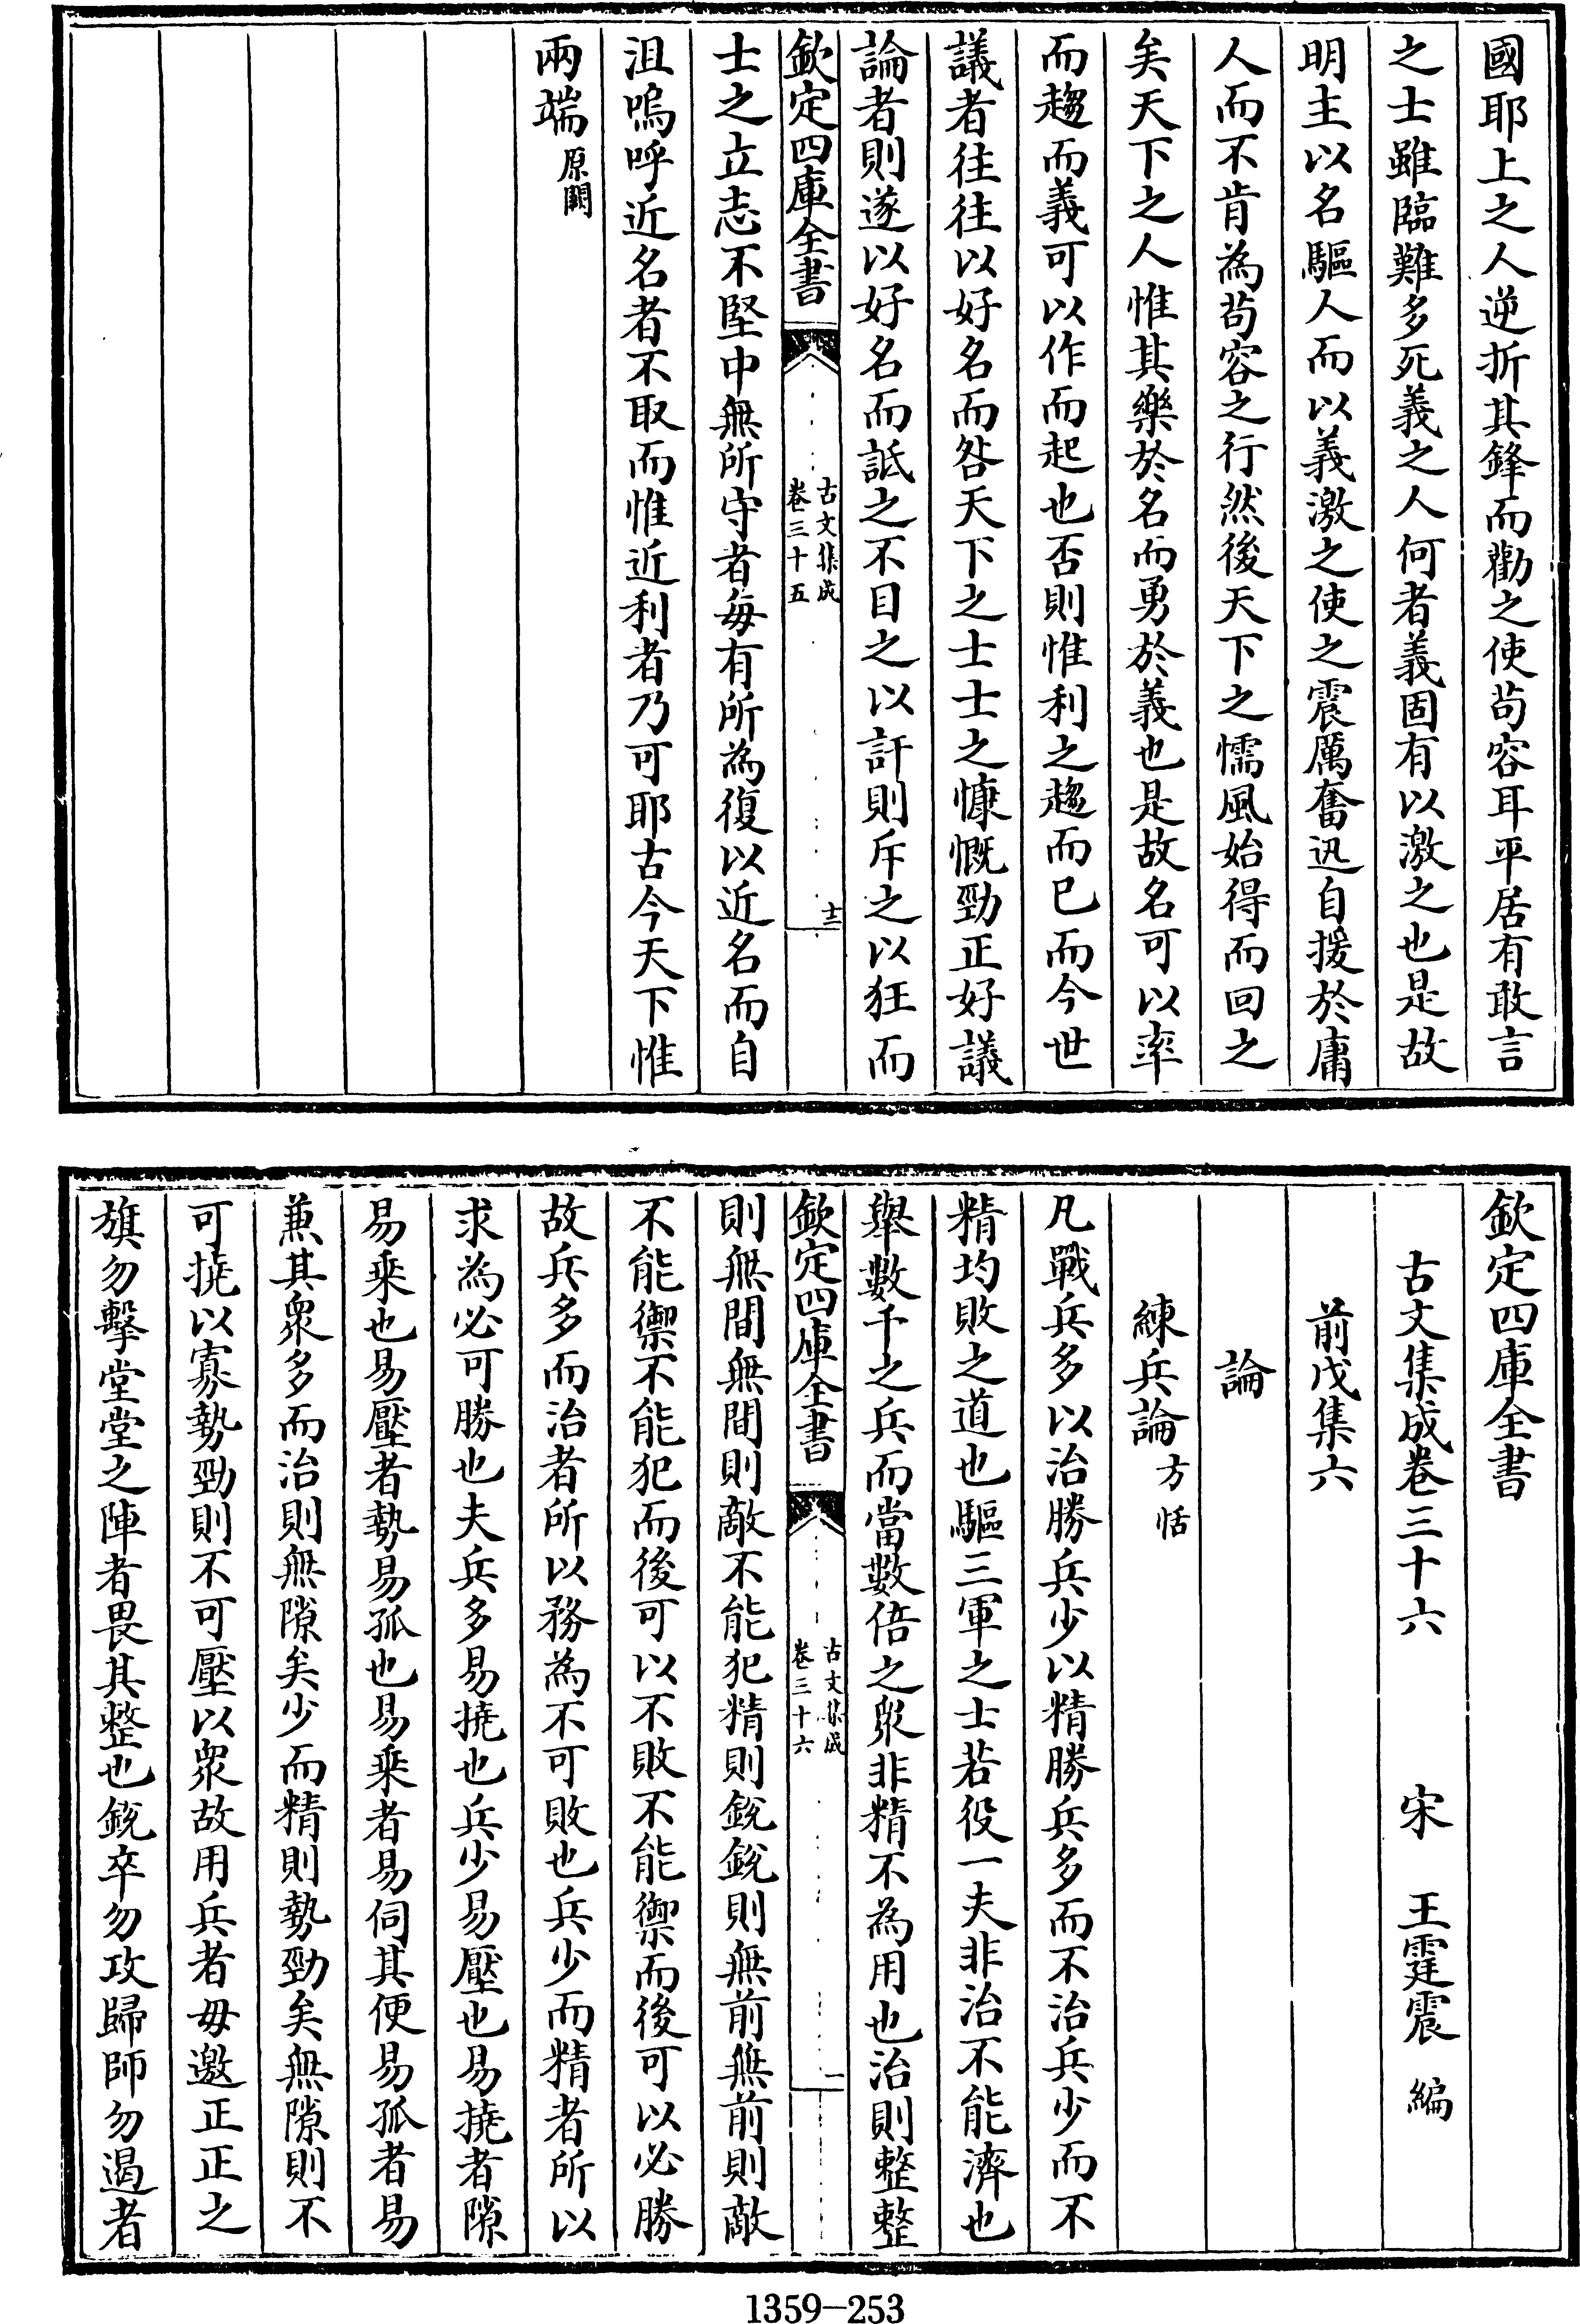 國耶上之人逆折其鋒而勸之使苟容耳平居有敢言
之士雖臨難多死義之人何者義固有以激之也是故
明主以名驅人而以義激之使之震厲奮迅自援於庸
人而不肯為苟容之行然後天下之懦風始得而回之
矣天下之人惟其樂於名而勇於義也是故名可以率
而趨而義可以作而起也否則惟利之趨而已而今世
議者往往以好名而咎天下之士士之慷慨勁正好議
論者則遂以好名而詆之不目之以訐則斥之以狂而
欽定四庫全書
古文集成
卷三十五
十三
士之立志不堅中無所守者每有所為復以近名而自
沮嗚呼近名者不取而惟近利者乃可耶古今天下惟
兩端原闕
欽定四庫全書
古文集成卷三十六 宋 王霆震 編
前戊集六
論
練兵論方恬
凡戰兵多以治勝兵少以精勝兵多而不治兵少而不
精均敗之道也驅三軍之士若役一夫非治不能濟也
舉數千之兵而當數倍之衆非精不為用也治則整整
欽定四庫全書
古文集成
卷三十六
一
則無間無間則敵不能犯精則銳銳則無前無前則敵
不能禦不能犯而後可以不敗不能禦而後可以必勝
故兵多而治者所以務為不可敗也兵少而精者所以
求為必可勝也夫兵多易撓也兵少易壓也易撓者隙
易乗也易壓者勢易孤也易乗者易伺其便易孤者易
兼其衆多而治則無隙矣少而精則勢勁矣無隙則不
可撓以寡勢勁則不可壓以衆故用兵者毋邀正正之
旗勿擊堂堂之陣者畏其整也銳卒勿攻歸師勿遏者
1359-253